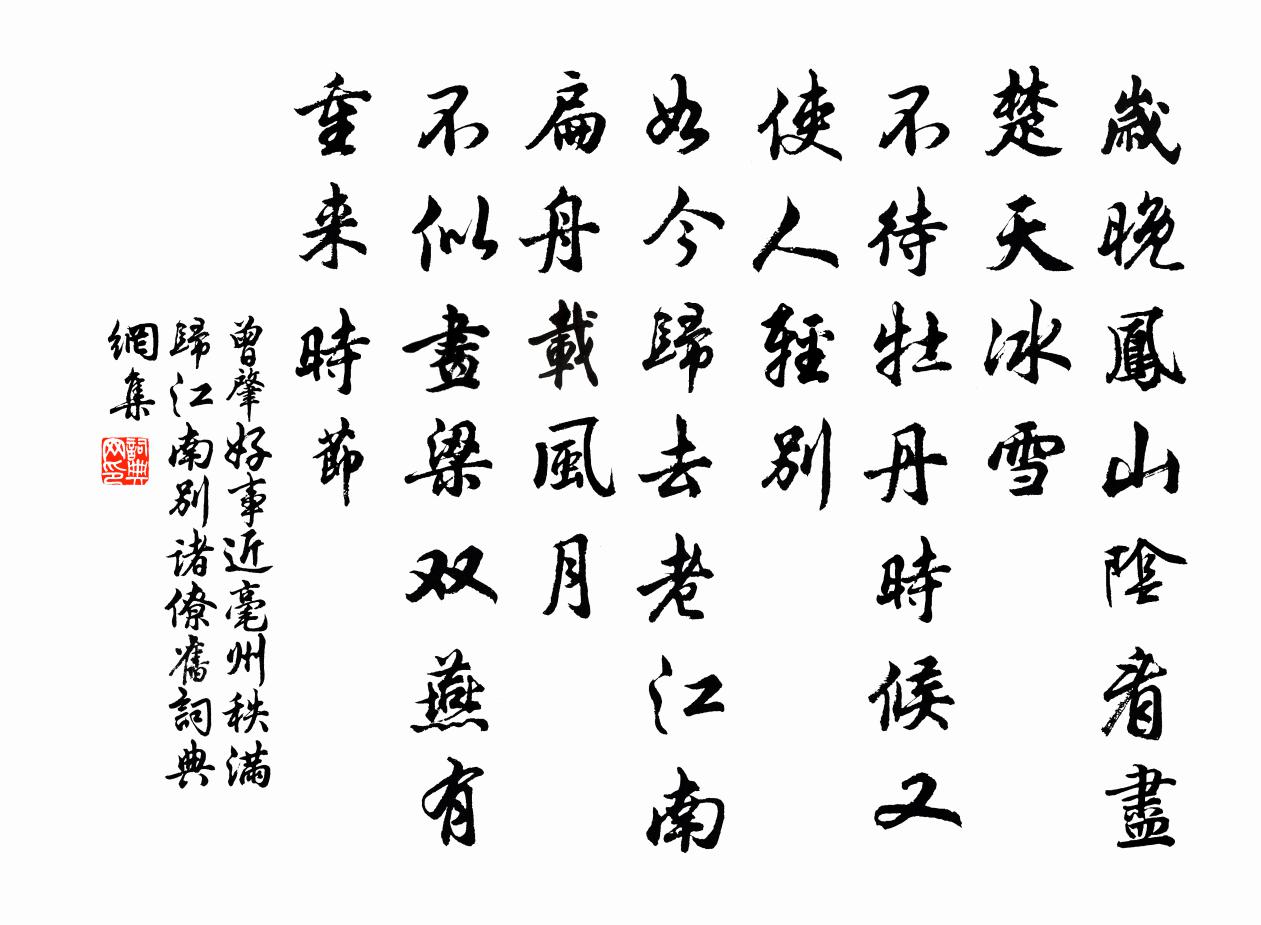 歲晚鳳山陰看盡
楚天冰雪
不待牡丹時候又
使人輕別
如今歸去老江南
扁舟載風月
不似畫梁双燕有
重来時節
曾肇好事近毫州秩滿
歸江南別诸僚舊詞典
網集
詞典
网印